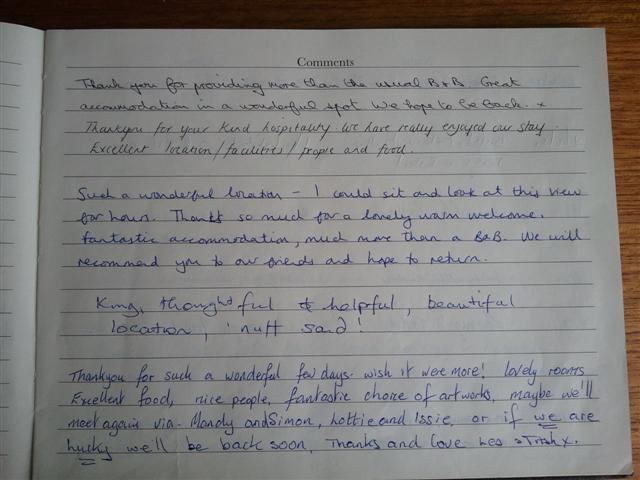 Comments
Thank you for providing more than the usual B+B. Great
accommodation in a wonderful spot. We hope to be back. x
Thankyou for your kind hospitality we have really enjoyed our stay.
Excellent location/facilities/people and food.
Such a wonderful location - I could sit and look at this view
for hours. Thanks so much for a lovely warm welcome,
fantastic accommodation, much more than a B&B. We will
recommend you to our friends and hope to return.
thoughtful & helpful, beautiful
location, 'nuff said!
Thankyou for such a wonderful few days. wish it were more! lovely rooms
Excellent food, nice people, fantastic choice of artworks, maybe we'll
meet again via. Mandy and Simon, Lottie and Issie, or if we are
lucky we'll be back soon, Thanks and love Les & Trish x.